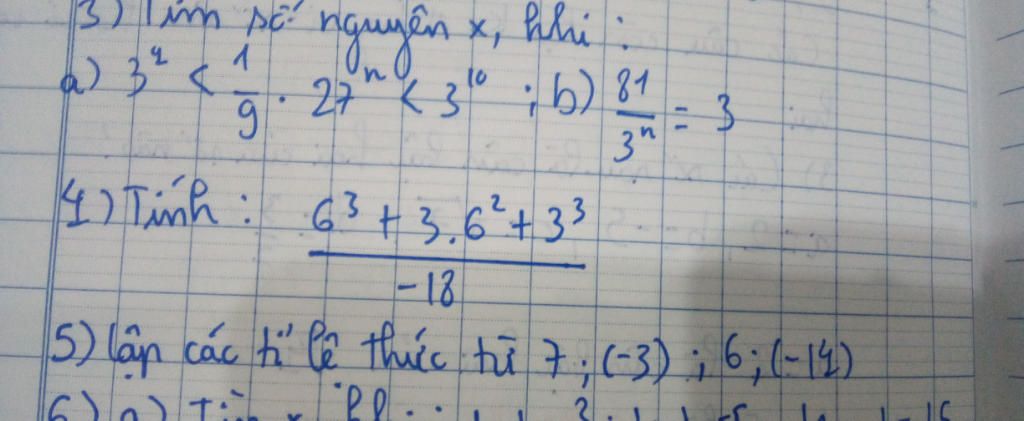 3) Tìm số nguyên x, khi :
a) 3² < 1/9 . 27ⁿ < 3¹⁰ ; b) 81/3ⁿ = 3
4) Tính : (6³ + 3.6² + 3³)/-18
5) lập các tỉ lệ thức từ 7 ; (-3) ; 6 ; (-14)
6) a)